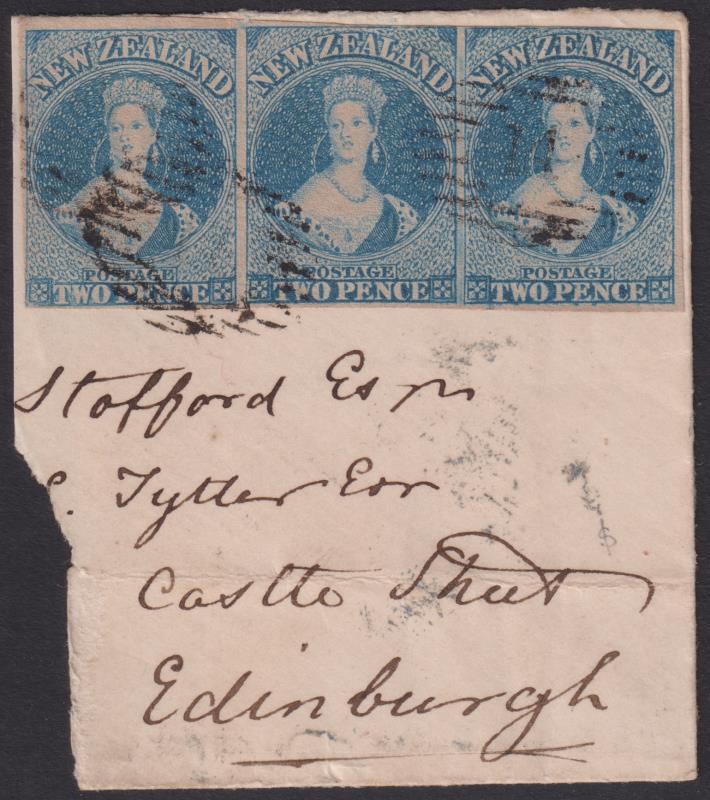 NEW ZEALAND NEW ZEALAND NEW ZEALAND
POSTAGE POSTAGE POSTAGE
TWO PENCE TWO PENCE TWO PENCE
Stafford Esqr
Tytler Esr
Castle Street
Edinburgh